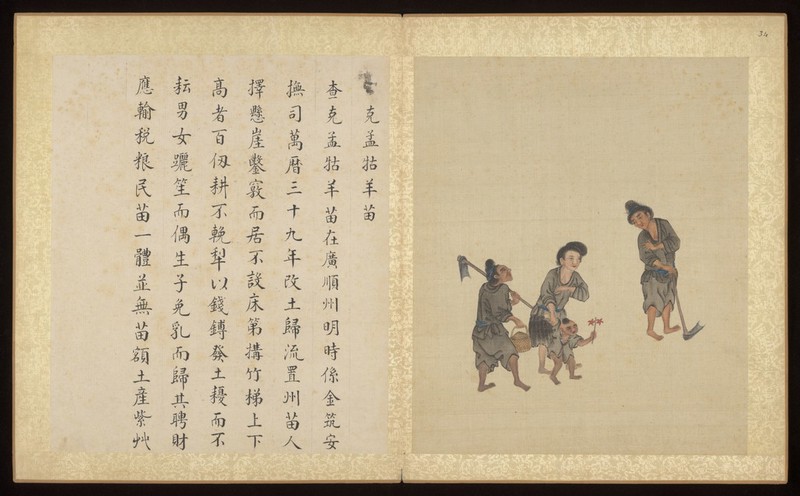 克孟牯羊苗
查克孟牯羊苗在廣順州明時係金筑安
撫司萬曆三十九年改土歸流置州苗人
擇懸崖鑿竅而居不設床笫搆竹梯上下
高者百仞耕不輓犁以錢鎛發土耰而不
耘男女躧笙而偶生子免乳而歸其聘財
應輸稅粮民苗一體並無苗額土產紫艸
34